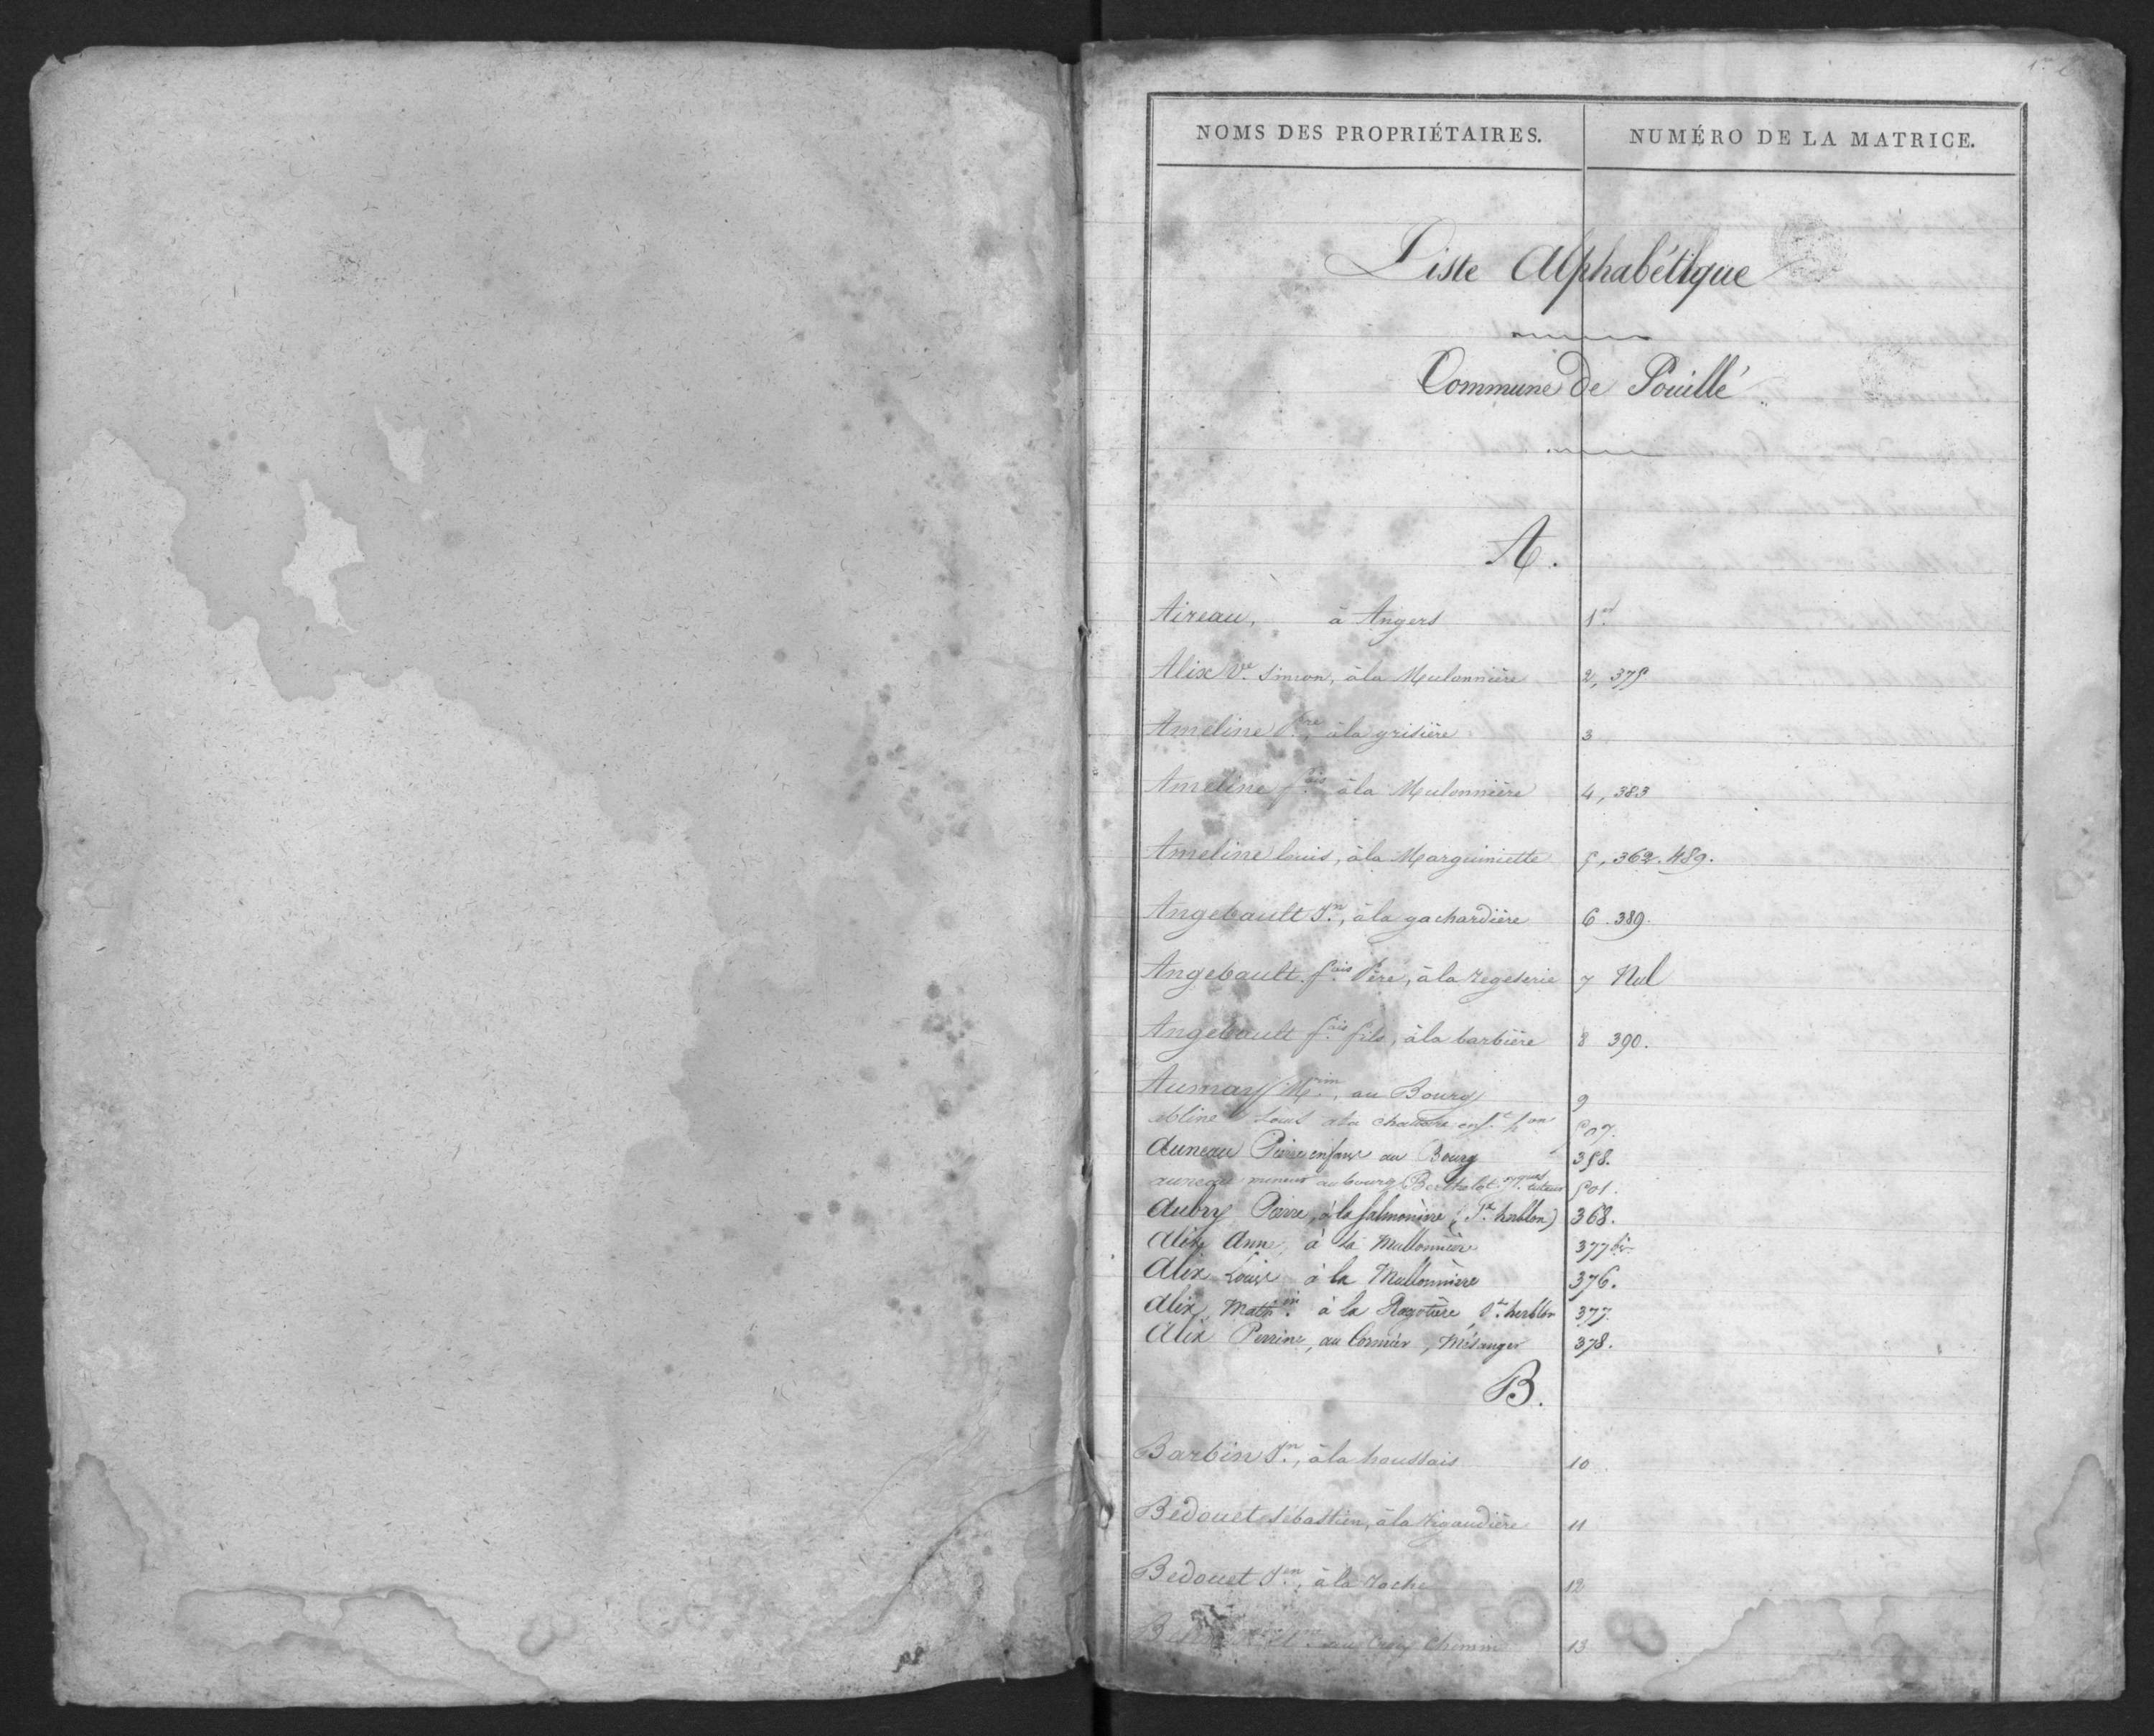 NOMS DES PROPRIÉTAIRES. NUMÉRO DE LA MATRICE.
Liste Alphabétique
Commune de Pouillé
A.
Aireau, à Angers 1er
Alix Ve. Simon, à la Meulonnière 2, 375
Ameline Pre, à la grisière 3
Ameline fois à la Meulonnière 4, 383
Ameline louis, à la Marguiniette 5, 362. 489.
Angebault Jn., à la gachardière 6. 389.
Angebault fois Père, à la regeserie 7 Nul
Angebault fois fils, à la barbière 8 390.
Aumay Mrin, au Bourg 9
Louis à la 507.
Auneau Pierre enfans au Bourg 358.
auneau mineur au bourg Berthelot tuteur 501.
Aubry Pierre, à la Salmonière (St. herblon) 368.
Alix Anne, à la Mullonnière 377 bis
Alix Louise à la Mullonnière 376.
Alix, Mathin. à la Ragotière St. herblon 377
Alix Perrine, au Cormier, Mésanger 378.
B.
Barbin Jn., à la houssais 10
Bedouet Sébastien, à la Rigaudière 11
Bedouet Jen., à la roche 12
au Chemin 13